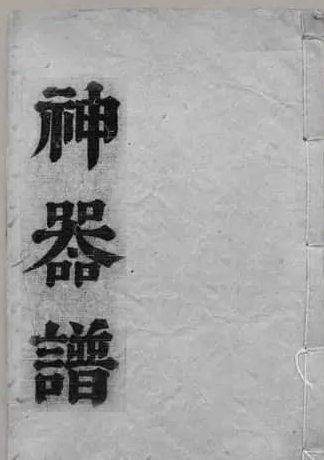 神器譜